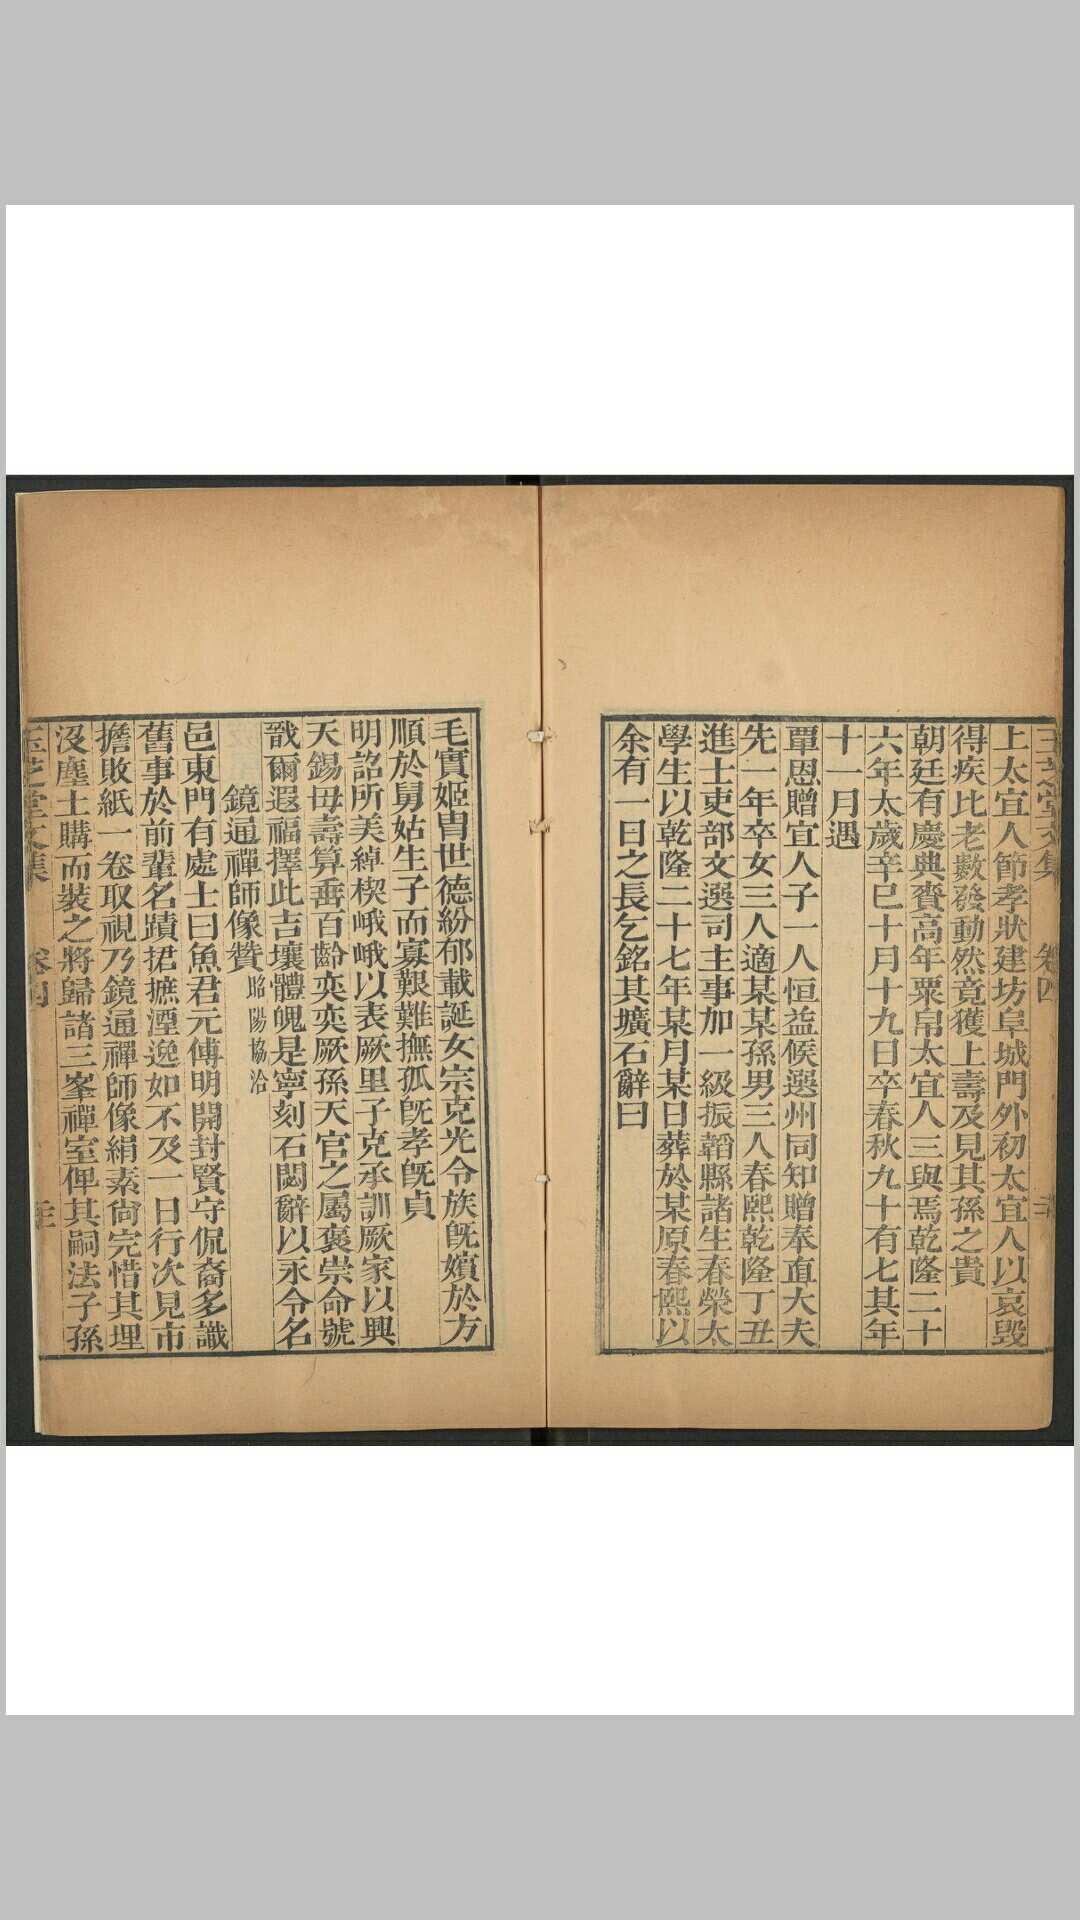 玉芝堂文集　卷四
上太宜人節孝狀建坊阜城門外初太宜人以哀毀
得疾比老數發動然竟獲上壽及見其孫之貴
朝廷有慶典賚高年粟帛太宜人三與焉乾隆二十
六年太歲辛巳十月十九日卒春秋九十有七其年
十一月遇
覃恩贈宜人子一人恒益候選州同知贈奉直大夫
先一年卒女三人適某某孫男三人春熙乾隆丁丑
進士吏部文選司主事加一級振韜縣諸生春榮太
學生以乾隆二十七年某月某日葬於某原春熙以
余有一日之長乞銘其壙石辭曰
毛實姬胄世德紛郁載誕女宗克光令族旣嬪於方
順於舅姑生子而寡艱難撫孤旣孝旣貞
明詔所美綽楔峨峨以表厥里子克承訓厥家以興
天錫毋壽算乖百齡奕奕厥孫天官之屬褒崇命號
戩爾遐福擇此吉壤體魄是寧刻石閟辭以永令名
鏡通禪師像贊 昭陽協洽
邑東門有處士曰魚君元傅明開封賢守侃裔多識
舊事於前輩名蹟捃摭湮逸如不及一日行次見市
擔敗紙一卷取視乃鏡通禪師像絹素尙完惜其埋
沒塵土購而裝之將歸諸三峯禪室俾其嗣法子孫
玉芝堂文集　卷四